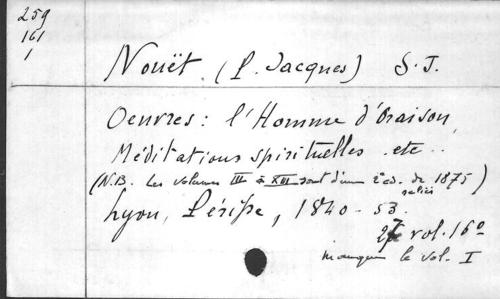 259
161
1
Nouët. (P. Jacques) S. J.
Oeuvres : l'Homme d'Oraison,
Méditations spirituelles etc..
(N.B. Les volumes III à XIII sont d'une 2e éd. de 1875)
reliés
Lyon, Périsse, 1840-53.
27 vol. 16°
manque le vol. I